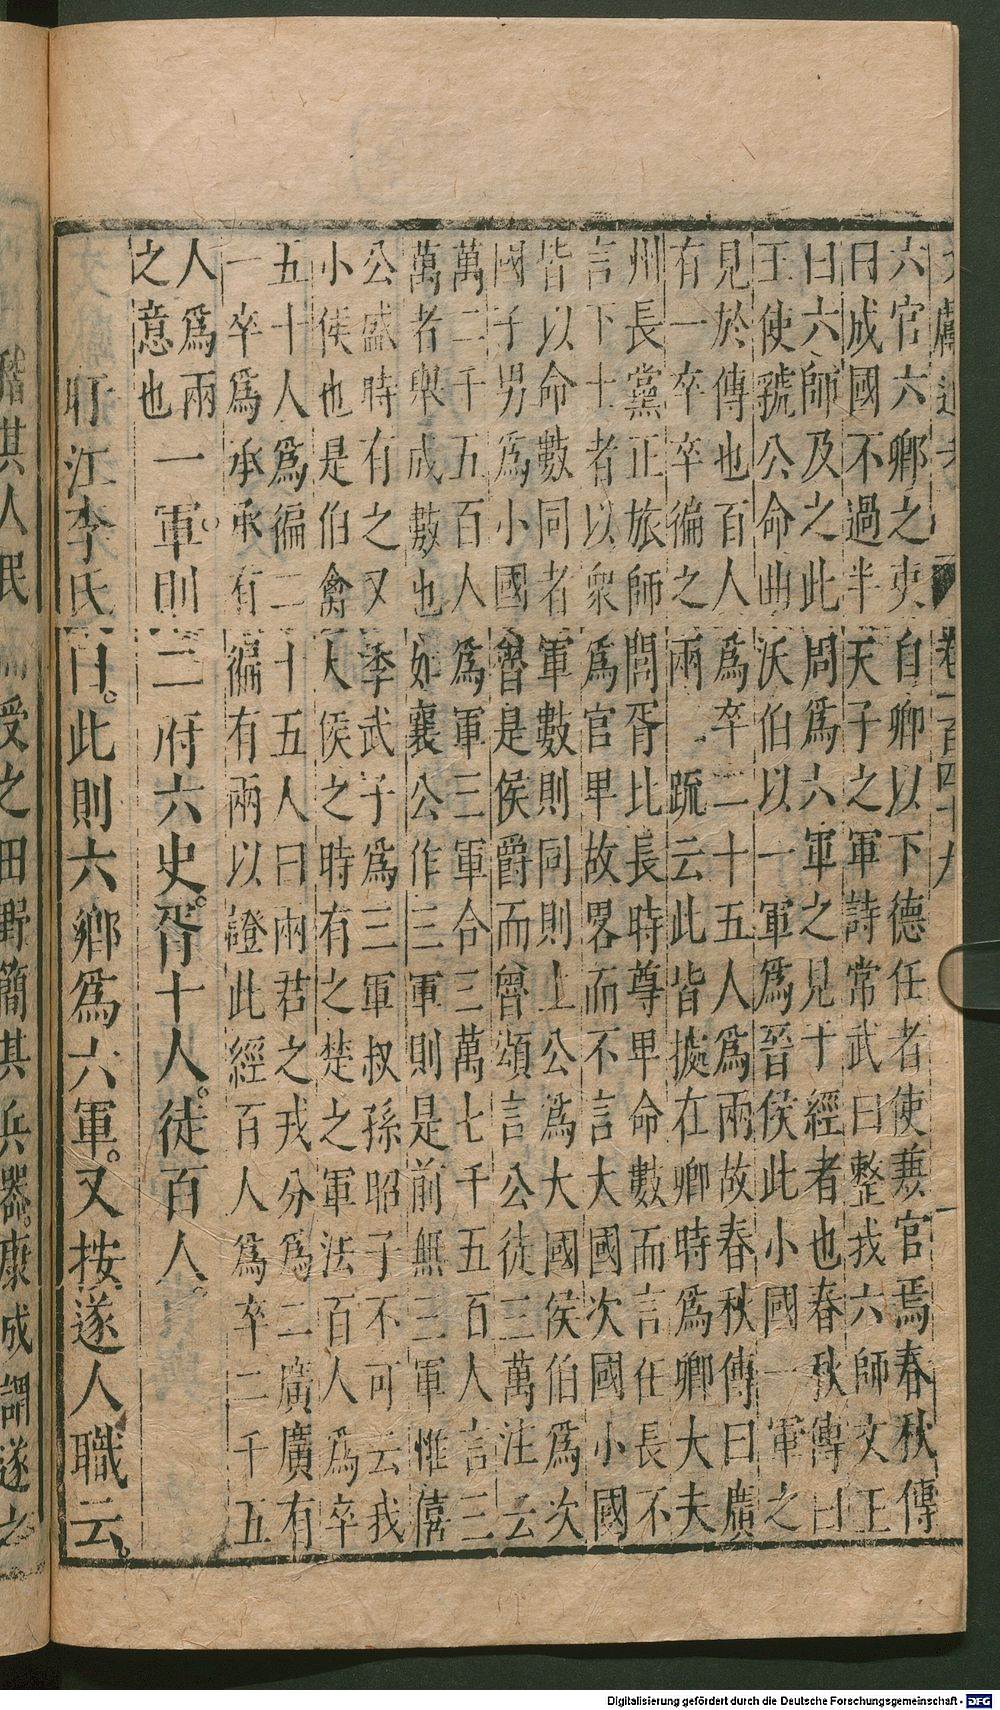 文獻通考 卷一百四十九 一
六官六卿之吏自卿以下德任者使兼官焉春秋傳
曰成國不過半天子之軍詩常武曰整我六師文王
曰六師及之此周爲六軍之見于經者也春秋傳曰
王使虢公命曲沃伯以一軍爲晉侯此小國一軍之
見於傳也百人爲卒二十五人爲兩故春秋傳曰廣
有一卒卒徧之兩 疏云此皆據在鄉時爲鄉大夫
州長黨正旅師閭胥比長時尊卑命數而言在長不
言下士者以衆爲官卑故畧而不言大國次國小國
皆以命數同者軍數則同則上公爲大國侯伯爲次
國子男爲小國魯是侯爵而魯頌言公徒三萬注云
萬二千五百人爲軍三軍合三萬七千五百人言三
萬者舉成數也如襄公作三軍則是前無三軍惟僖
公盛時有之又季武子爲三軍叔孫昭子不可云我
小侯也是伯禽人侯之時有之楚之軍法百人爲卒
五十人爲徧二十五人曰兩君之戎分爲二廣廣有
一卒爲承承有徧有兩以證此經百人爲卒二千五
人爲兩
之意也
一軍。則二府六史。胥十人。徒百人。
盱江李氏曰。此則六鄉爲六軍。又按遂人職云。
稽其人民而授之田野簡其兵器。康成謂遂之
Digitalisierung gefördert durch die Deutsche Forschungsgemeinschaft - DFG